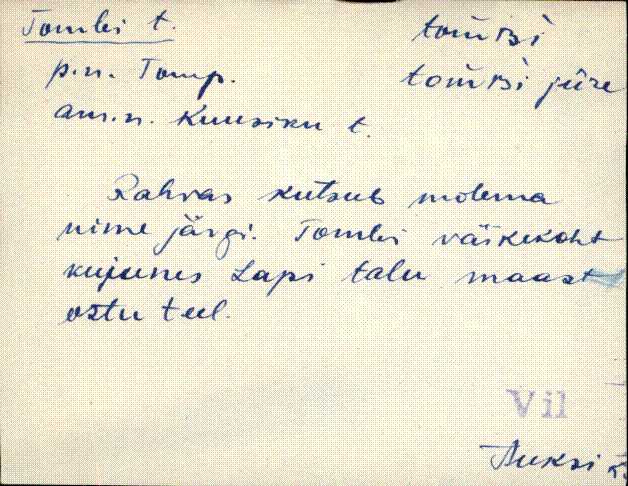 Tombi t. tom̄ʙi
p.n. Tomp. tom̄ʙi jüre
am.n. Kuusiku t.
Rahvas kutsub mõlema
nime järgi. Tombi väikekoht
kujunes Lapi talu maast
ostu teel.
Vil
Auksi k.